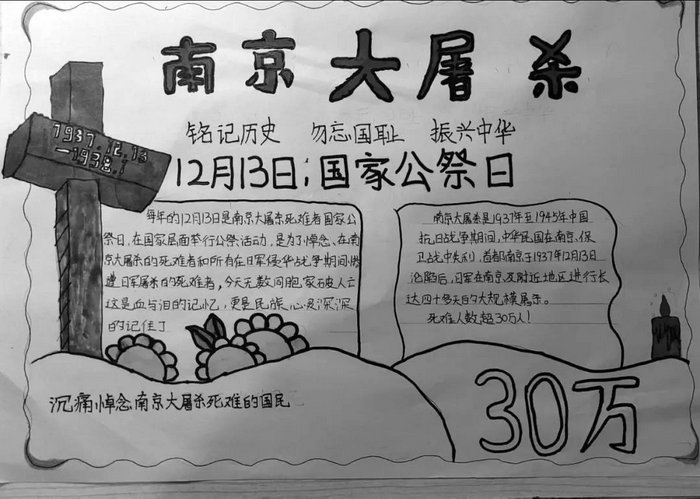 南京大屠杀
铭记历史 勿忘国耻 振兴中华
12月13日:国家公祭日
1937.12.13
-1938.1
每年的12月13日是南京大屠杀死难者国家公
祭日,在国家层面举行公祭活动,是为了悼念、在南
京大屠杀的死难者和所有在日军侵华战争期间惨
遭日军屠杀的死难者,今天无数同胞,家破人亡
这是血与泪的记忆,更是民族,心灵深深
的记住了
南京大屠杀是1937年至1945年中国
抗日战争期间,中华民国在南京保
卫战中失利,首都南京于1937年12月13日
沦陷后,日军在南京及附近地区进行长
达四十多天的大规模屠杀。
死难人数超30万人!
沉痛悼念南京大屠杀死难的国民
30万